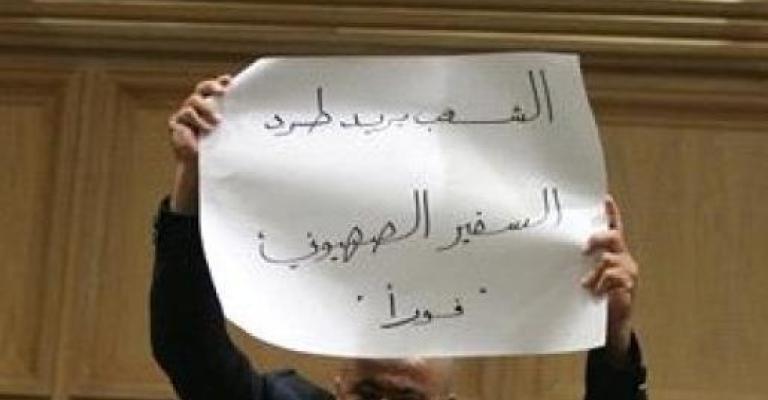 الشعب يريد طرد
السفير الصهيوني
"فوراً"